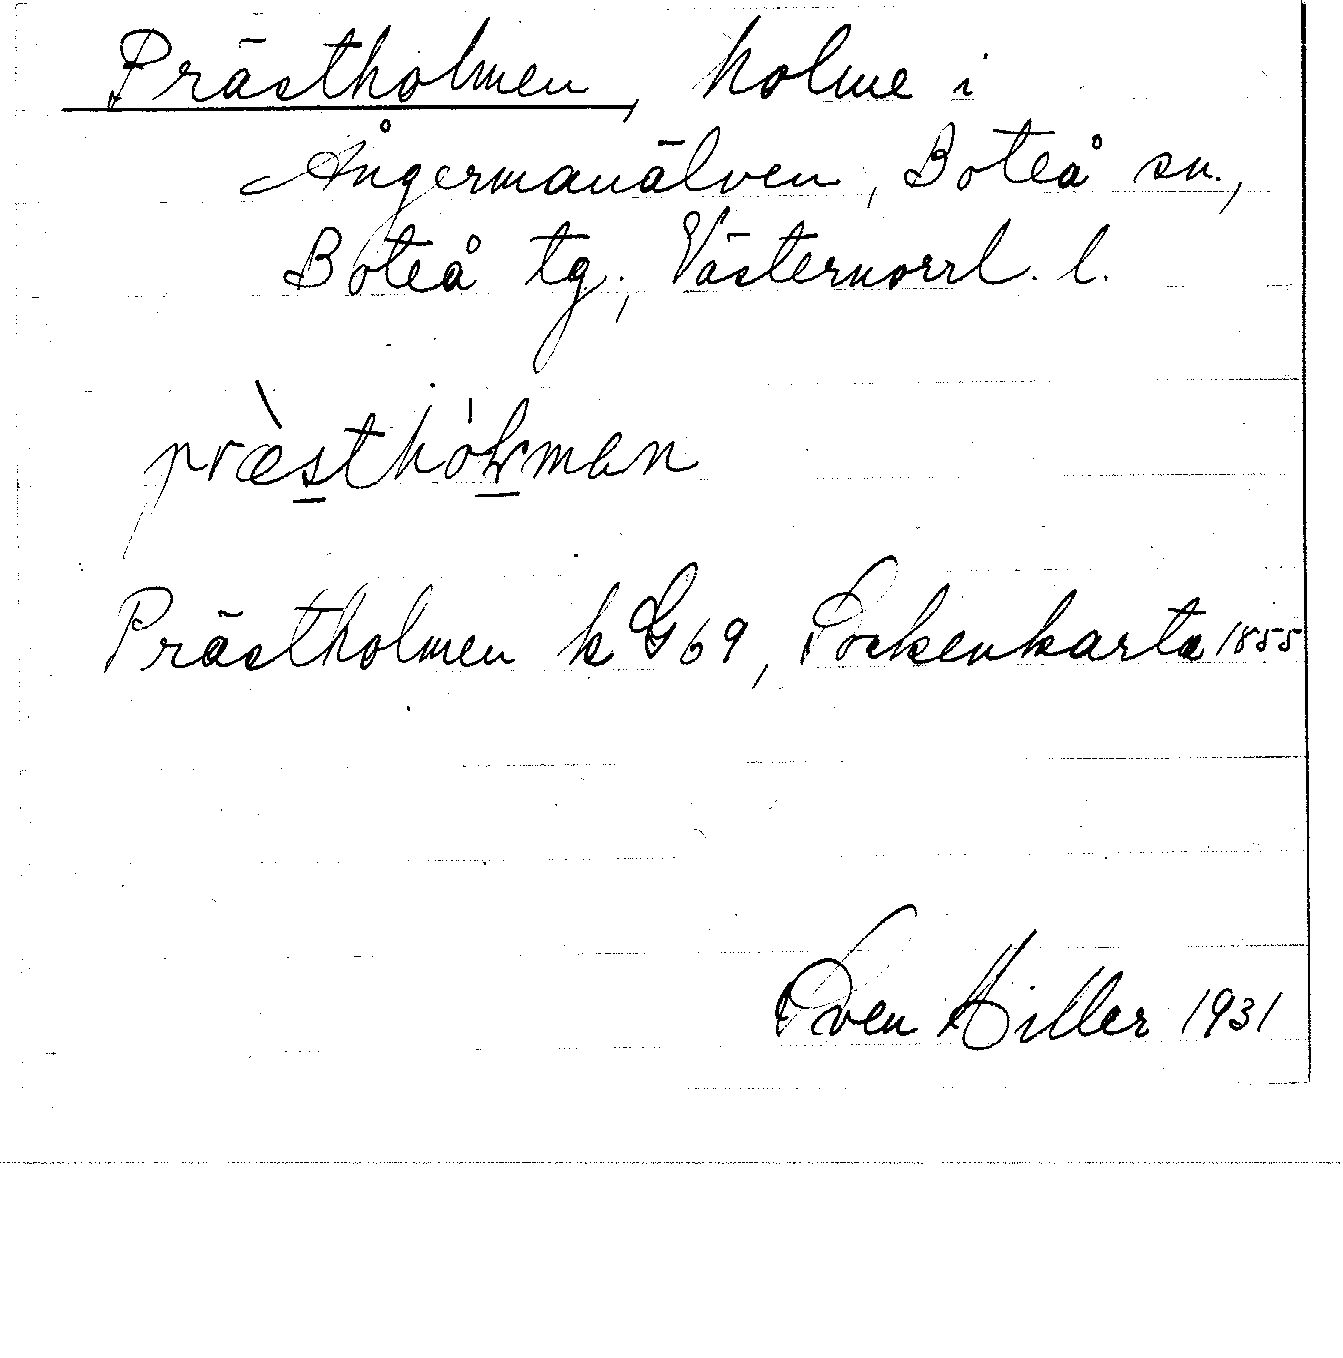 Prästholmen, holme i
Ångermanälven, Boteå sn.,
Boteå tg., Västernorrl. l.
Prästholmen k G69, Sockenkarta 1855
Sven Hiller 1931